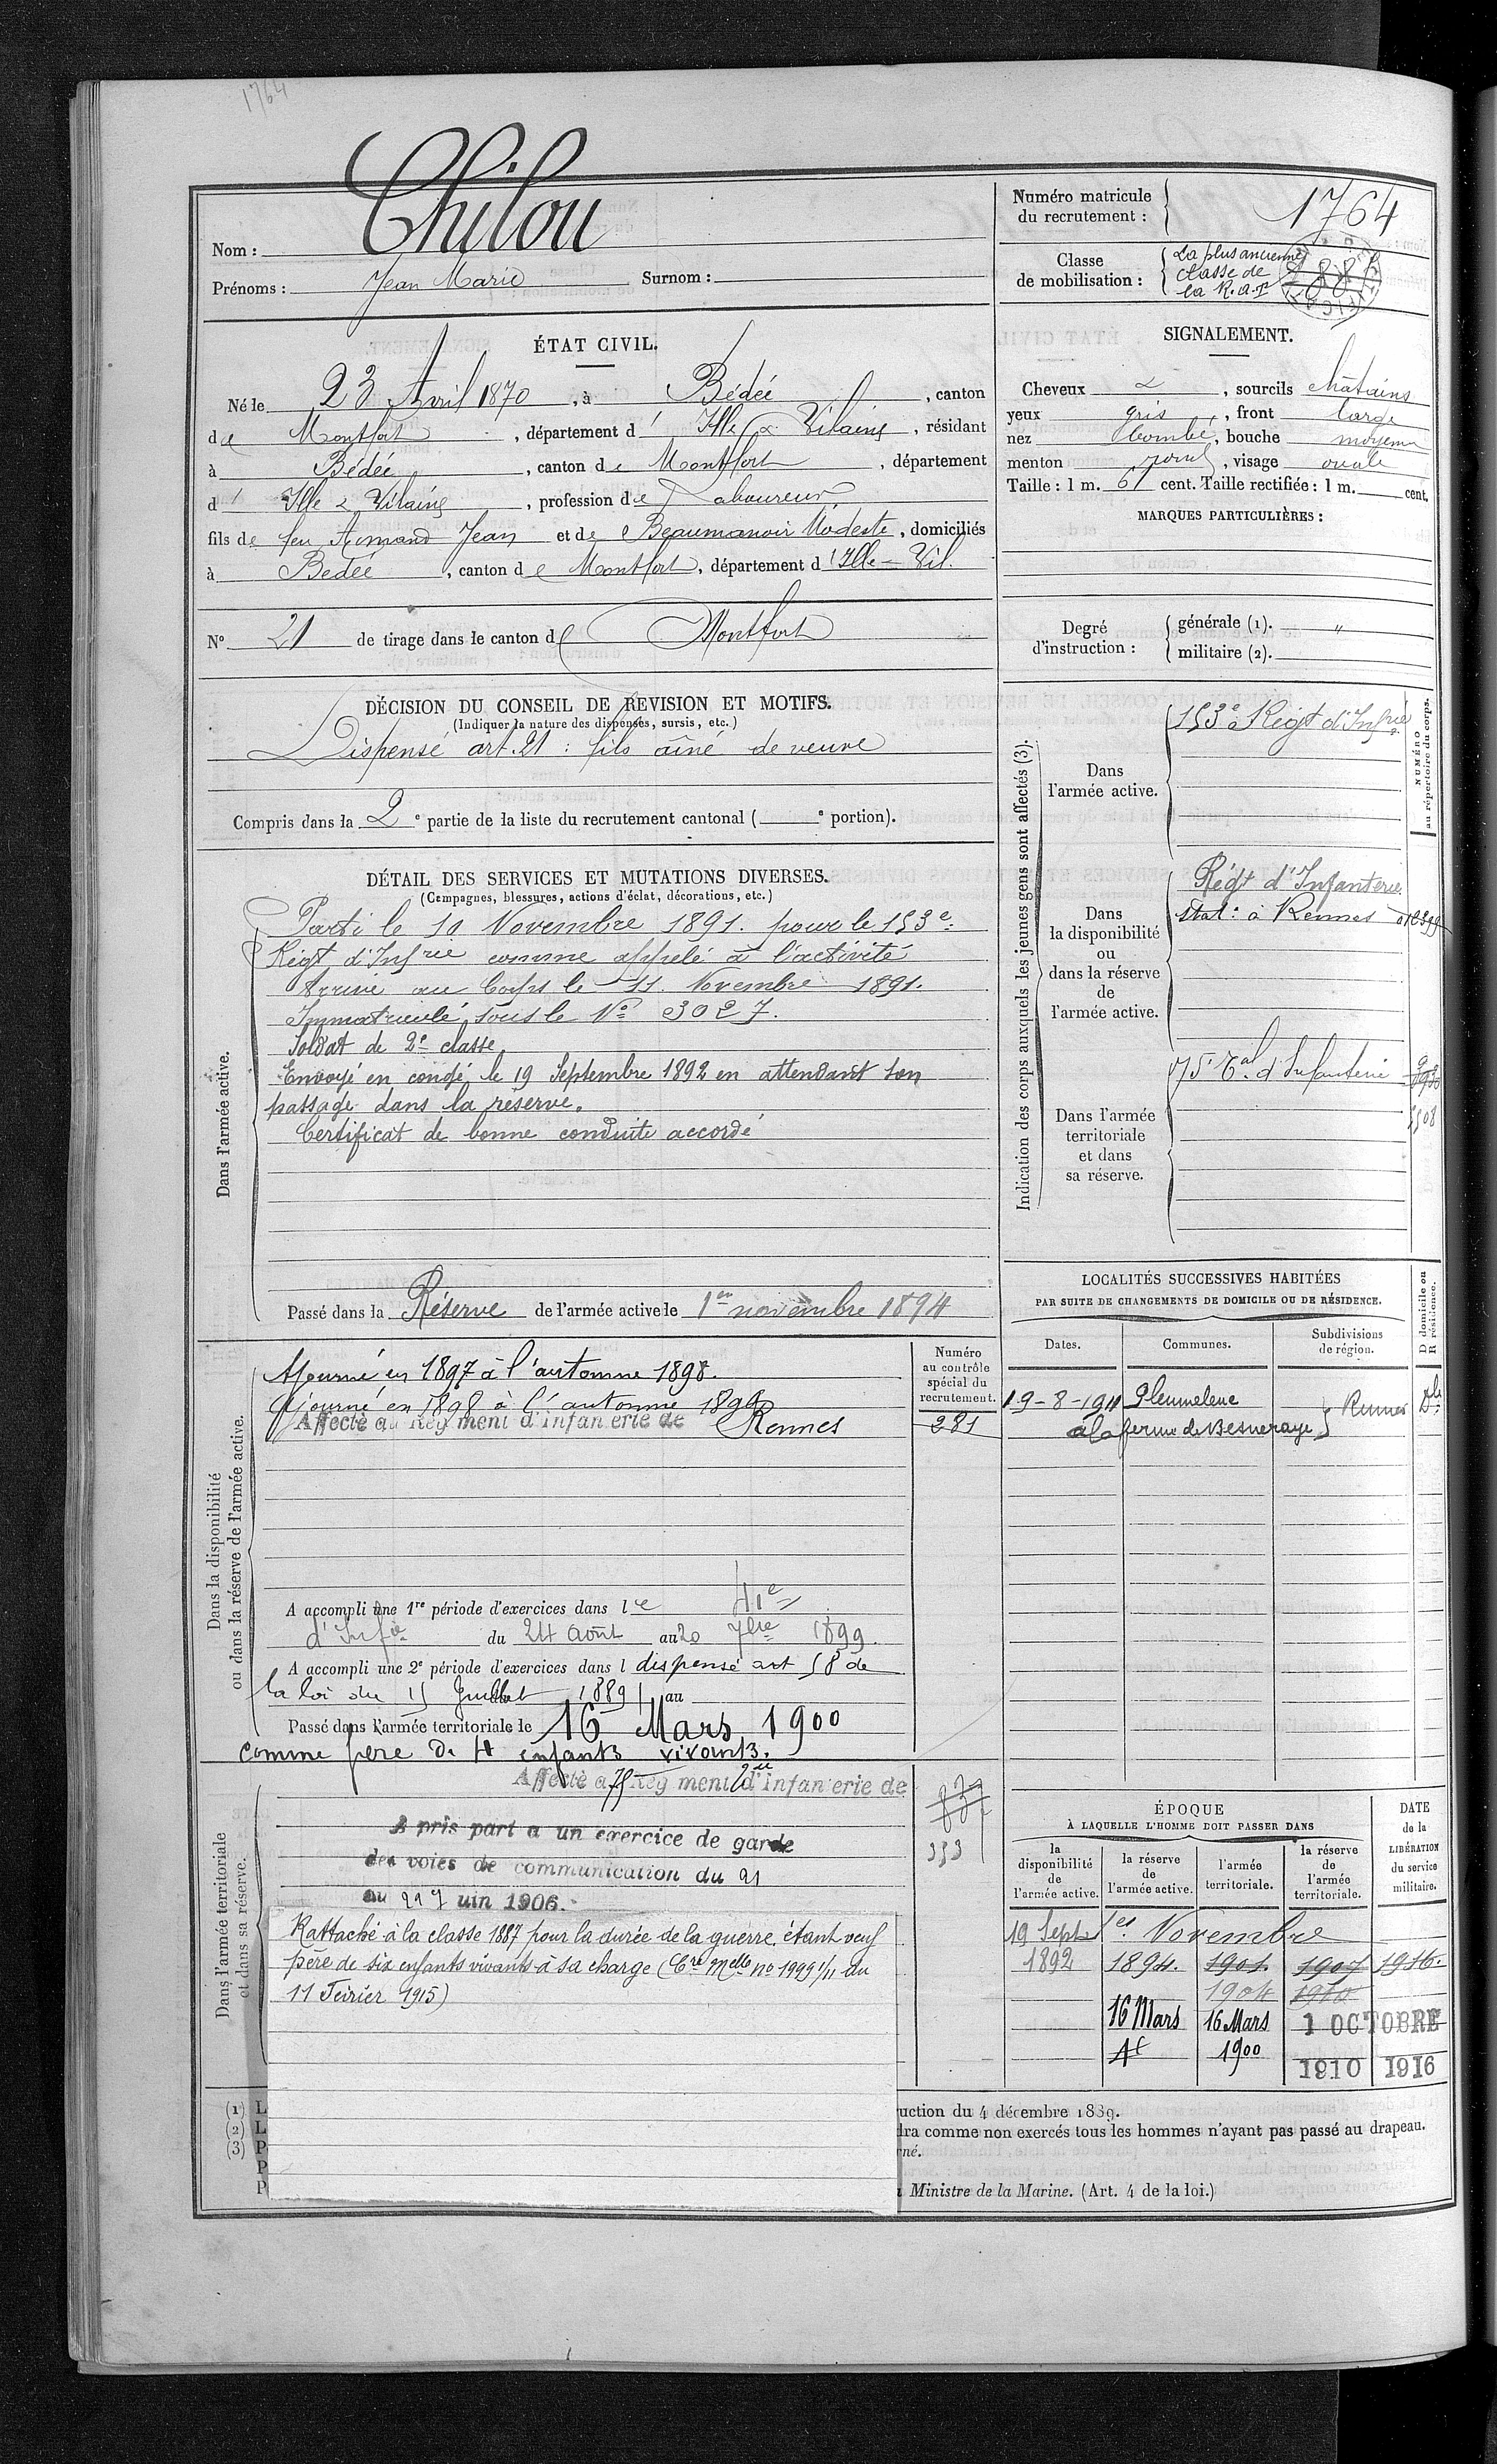 1764
Nom : Chilou
Prénoms : Jean Marie Surnom :
Numéro matricule du recrutement : 1764
Classe de mobilisation : La plus ancienne classe de la R.A.T
ÉTAT CIVIL.
Né le 23 Avril 1870, à Bédée, canton
de Montfort, département d' Ille & Vilaine, résidant
à Bédée, canton de Montfort, département
d' Ille & Vilaine, profession de Laboureur
fils de feu Armand Jean et de Beaumanoir Modeste, domiciliés
à Bédée, canton de Montfort, département d' Ille-Vil.
N° 21 de tirage dans le canton de Montfort
DÉCISION DU CONSEIL DE REVISION ET MOTIFS.
(Indiquer la nature des dispenses, sursis, etc.)
Dispensé art. 21 : fils aîné de veuve
Compris dans la 2e partie de la liste du recrutement cantonal ( e portion).
SIGNALEMENT.
Cheveux &, sourcils châtains
yeux gris, front large
nez bombé, bouche moyenne
menton rond, visage ovale
Taille : 1 m. 61 cent. Taille rectifiée : 1 m. cent.
MARQUES PARTICULIÈRES :
Degré d'instruction : générale (1). "
militaire (2).
DÉTAIL DES SERVICES ET MUTATIONS DIVERSES.
(Campagnes, blessures, actions d'éclat, décorations, etc.)
Dans l'armée active.
Parti le 10 Novembre 1891. pour le 153e
Régt d'Infrie comme appelé à l'activité
Arrivé au Corps le 11 Novembre 1891.
Immatriculé sous le No 3027.
Soldat de 2e classe.
Envoyé en congé le 19 Septembre 1892 en attendant son
passage dans la réserve.
Certificat de bonne conduite accordé
Passé dans la Réserve de l'armée active le 1er novembre 1894
Indication des corps auxquels les jeunes gens sont affectés (3).
NUMÉRO au répertoire du corps.
Dans l'armée active.
153e Régt d'Infrie
Dans la disponibilité ou dans la réserve de l'armée active.
Régt d'Infanterie
Stat: à Rennes
Dans l'armée territoriale et dans sa réserve.
75e Tal d'Infanterie
1508
LOCALITÉS SUCCESSIVES HABITÉES
PAR SUITE DE CHANGEMENTS DE DOMICILE OU DE RÉSIDENCE.
Dates. Communes. Subdivisions de région. D domicile ou R résidence.
19-8-1911 Pleumeleuc Rennes
à la ferme de Besneraye
Dans la disponibilité ou dans la réserve de l'armée active.
Numéro au contrôle spécial du recrutement.
Ajourné en 1897 à l'automne 1898.
Ajourné en 1898 à l'automne 1899
Affecté au Régiment d'Infanterie de Rennes 281
A accompli une 1re période d'exercices dans le 41e
d'Infie du 24 Août au 20 7bre 1899.
A accompli une 2e période d'exercices dans l dispensé art 58 de
la loi du 15 Juillet 1889 au
Passé dans l'armée territoriale le 16 Mars 1900
comme père de 4 enfants vivants.
Dans l'armée territoriale et dans sa réserve.
Affecté au 75 Régiment d'Infanterie de
353
A pris part à un exercice de garde
des voies de communication du 21
au 29 Juin 1906.
Rattaché à la classe 1887 pour la durée de la guerre, étant veuf
père de six enfants vivants à sa charge (Cre Melle no 1999 1/11 du
11 Février 1915)
ÉPOQUE
À LAQUELLE L'HOMME DOIT PASSER DANS
la disponibilité de l'armée active. la réserve de l'armée active. l'armée territoriale. la réserve de l'armée territoriale. DATE de la LIBÉRATION du service militaire.
19 Sept 1er Novembre
1892 1894. 1901. 1907 1916.
1904 1910
16 Mars 16 Mars 1 OCTOBRE
1900 1910 1916
(1) L
(2) L
(3) P
P
P
uction du 4 décembre 1889.
dra comme non exercés tous les hommes n'ayant pas passé au drapeau.
né.
Ministre de la Marine. (Art. 4 de la loi.)